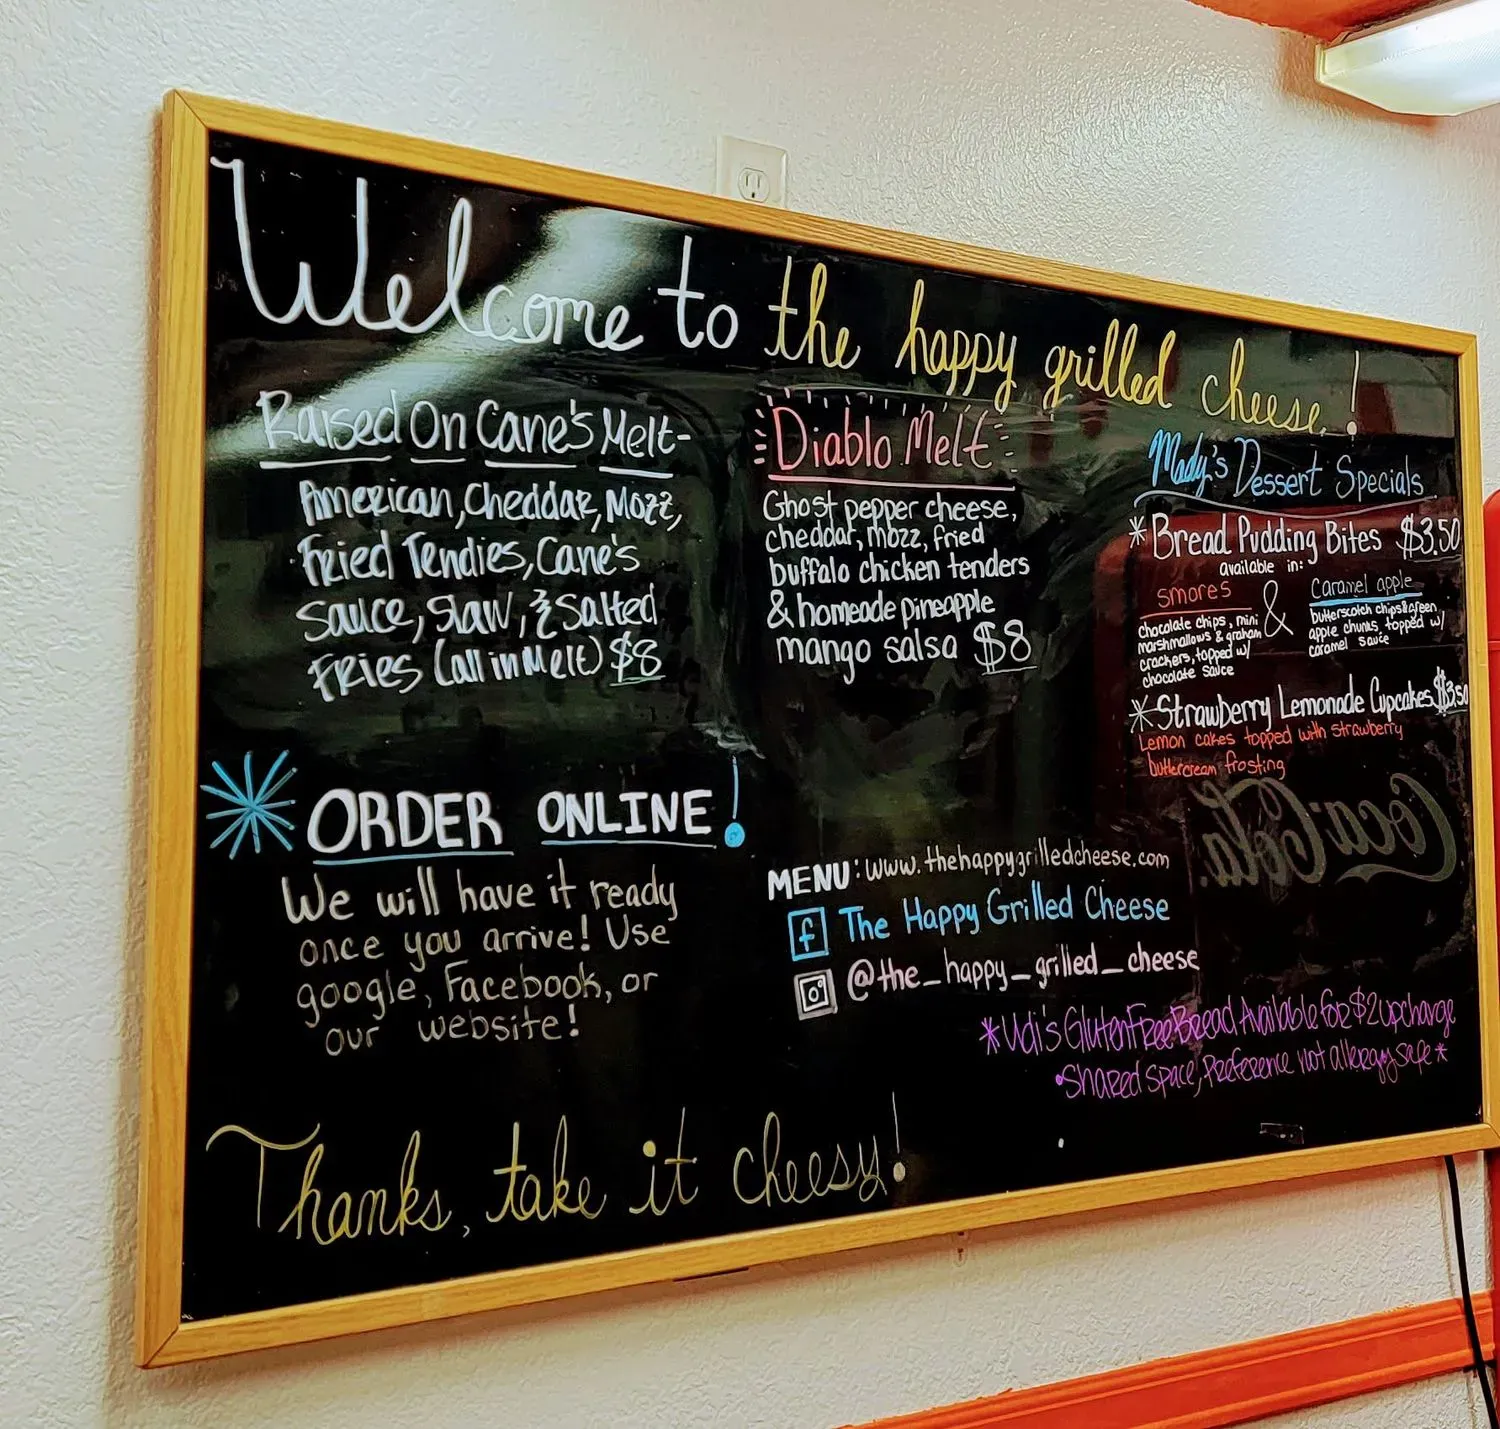 Welcome to the happy grilled cheese!
Raised On Cane's Melt-
American, Cheddar, Mozz,
Fried Tendies, Cane's
Sauce, Slaw, & Salted
Fries (all in Melt) $8
Diablo Melt
Ghost pepper cheese,
cheddar, mozz, fried
buffalo chicken tenders
& homeade pineapple
mango salsa $8
Mady's Dessert Specials
* Bread Pudding Bites $3.50
available in:
smores
chocolate chips, mini
marshmallows & graham
crackers, topped w/
chocolate sauce
&
Caramel apple
butterscotch chips & green
apple chunks, topped w/
caramel sauce
* Strawberry Lemonade Cupcakes $3.50
Lemon cakes topped with strawberry
buttercream frosting
Coca-Cola
* ORDER ONLINE!
We will have it ready
once you arrive! Use
google, Facebook, or
our website!
MENU: www.thehappygrilledcheese.com
f The Happy Grilled Cheese
@the_happy_grilled_cheese
* Udi's Gluten Free Bread Available for $2 upcharge
• Shared space, Preference not allergy safe *
Thanks, take it cheesy!